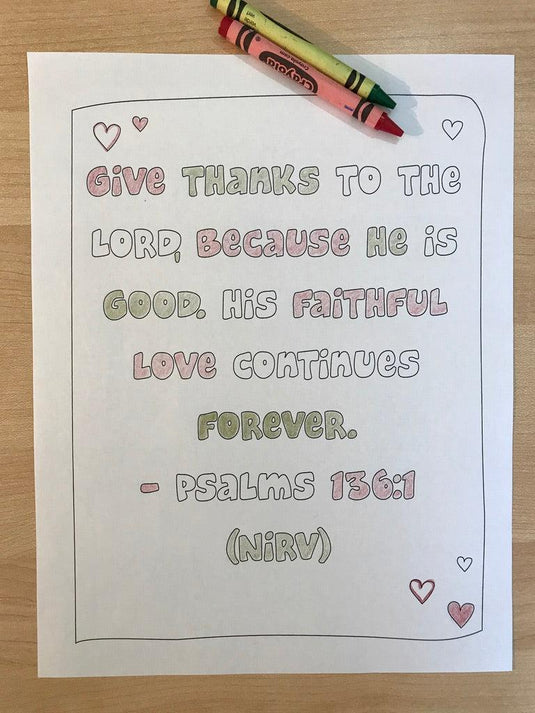 Crayola
GIVE THANKS TO THE
LORD, BECAUSE HE IS
GOOD. HIS FAITHFUL
LOVE CONTINUES
FOREVER.
- PSALMS 136:1
(NIRV)